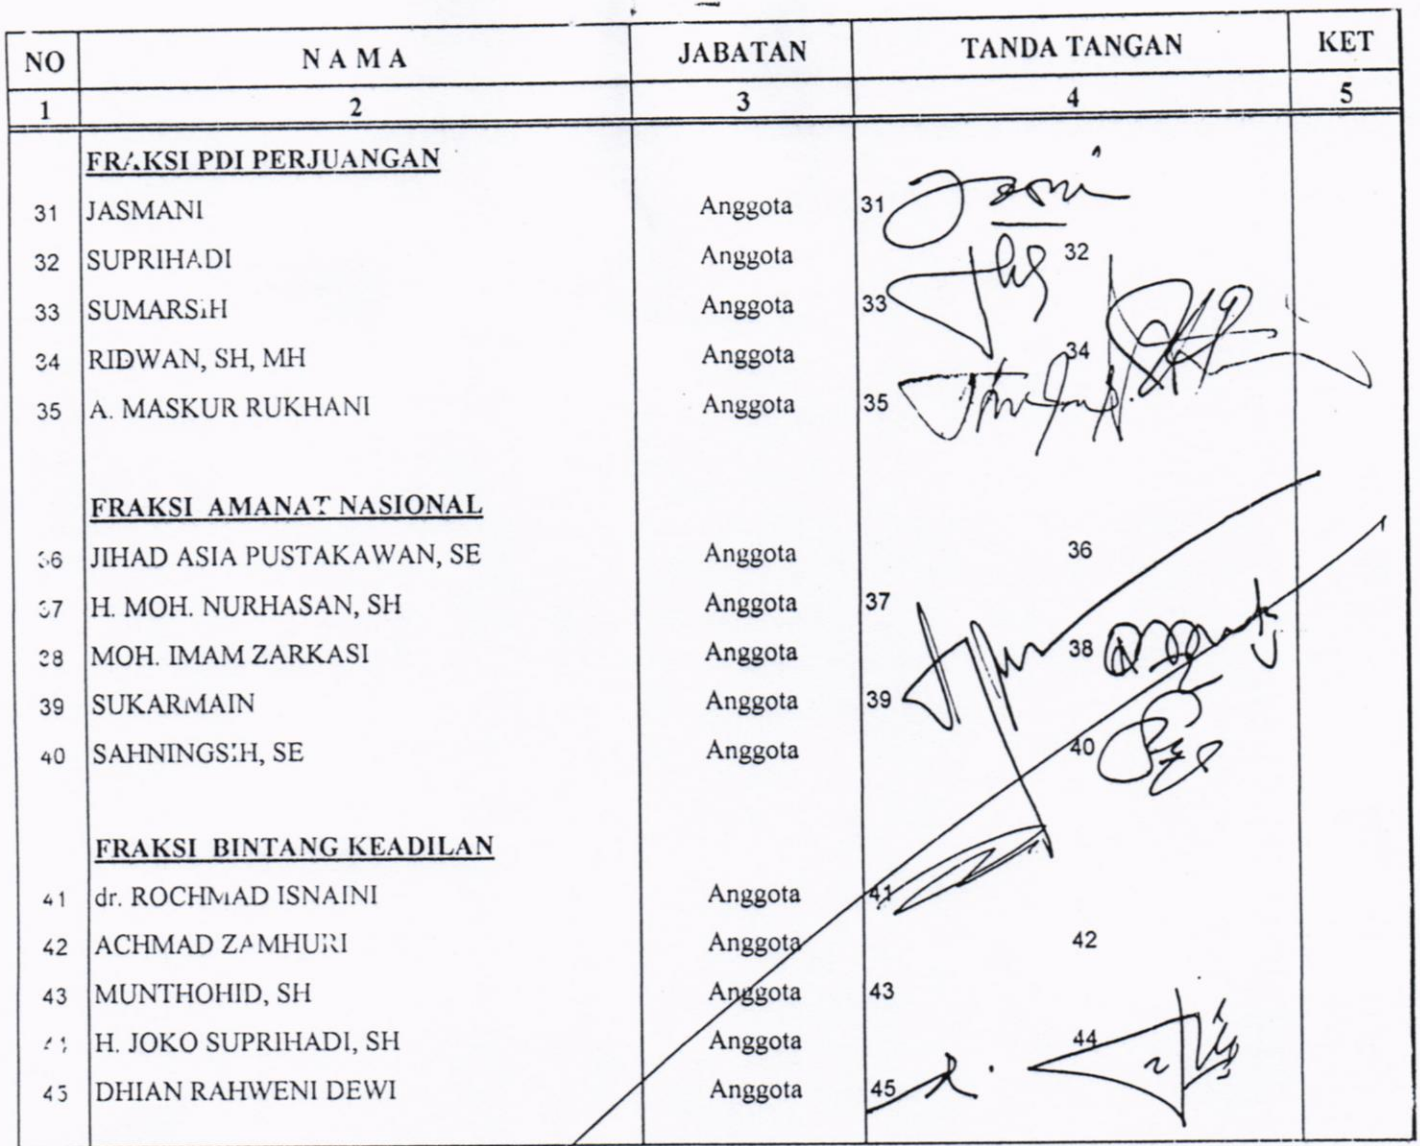 NO NAMA JABATAN TANDA TANGAN KET
1 2 3 4 5
FRAKSI PDI PERJUANGAN
31 JASMANI Anggota 31
32 SUPRIHADI Anggota 32
33 SUMARSIH Anggota 33
34 RIDWAN, SH, MH Anggota 34
35 A. MASKUR RUKHANI Anggota 35
FRAKSI AMANAT NASIONAL
36 JIHAD ASIA PUSTAKAWAN, SE Anggota 36
37 H. MOH. NURHASAN, SH Anggota 37
38 MOH. IMAM ZARKASI Anggota 38
39 SUKARMAIN Anggota 39
40 SAHNINGSIH, SE Anggota 40
FRAKSI BINTANG KEADILAN
41 dr. ROCHMAD ISNAINI Anggota 41
42 ACHMAD ZAMHURI Anggota 42
43 MUNTHOHID, SH Anggota 43
44 H. JOKO SUPRIHADI, SH Anggota 44
45 DHIAN RAHWENI DEWI Anggota 45